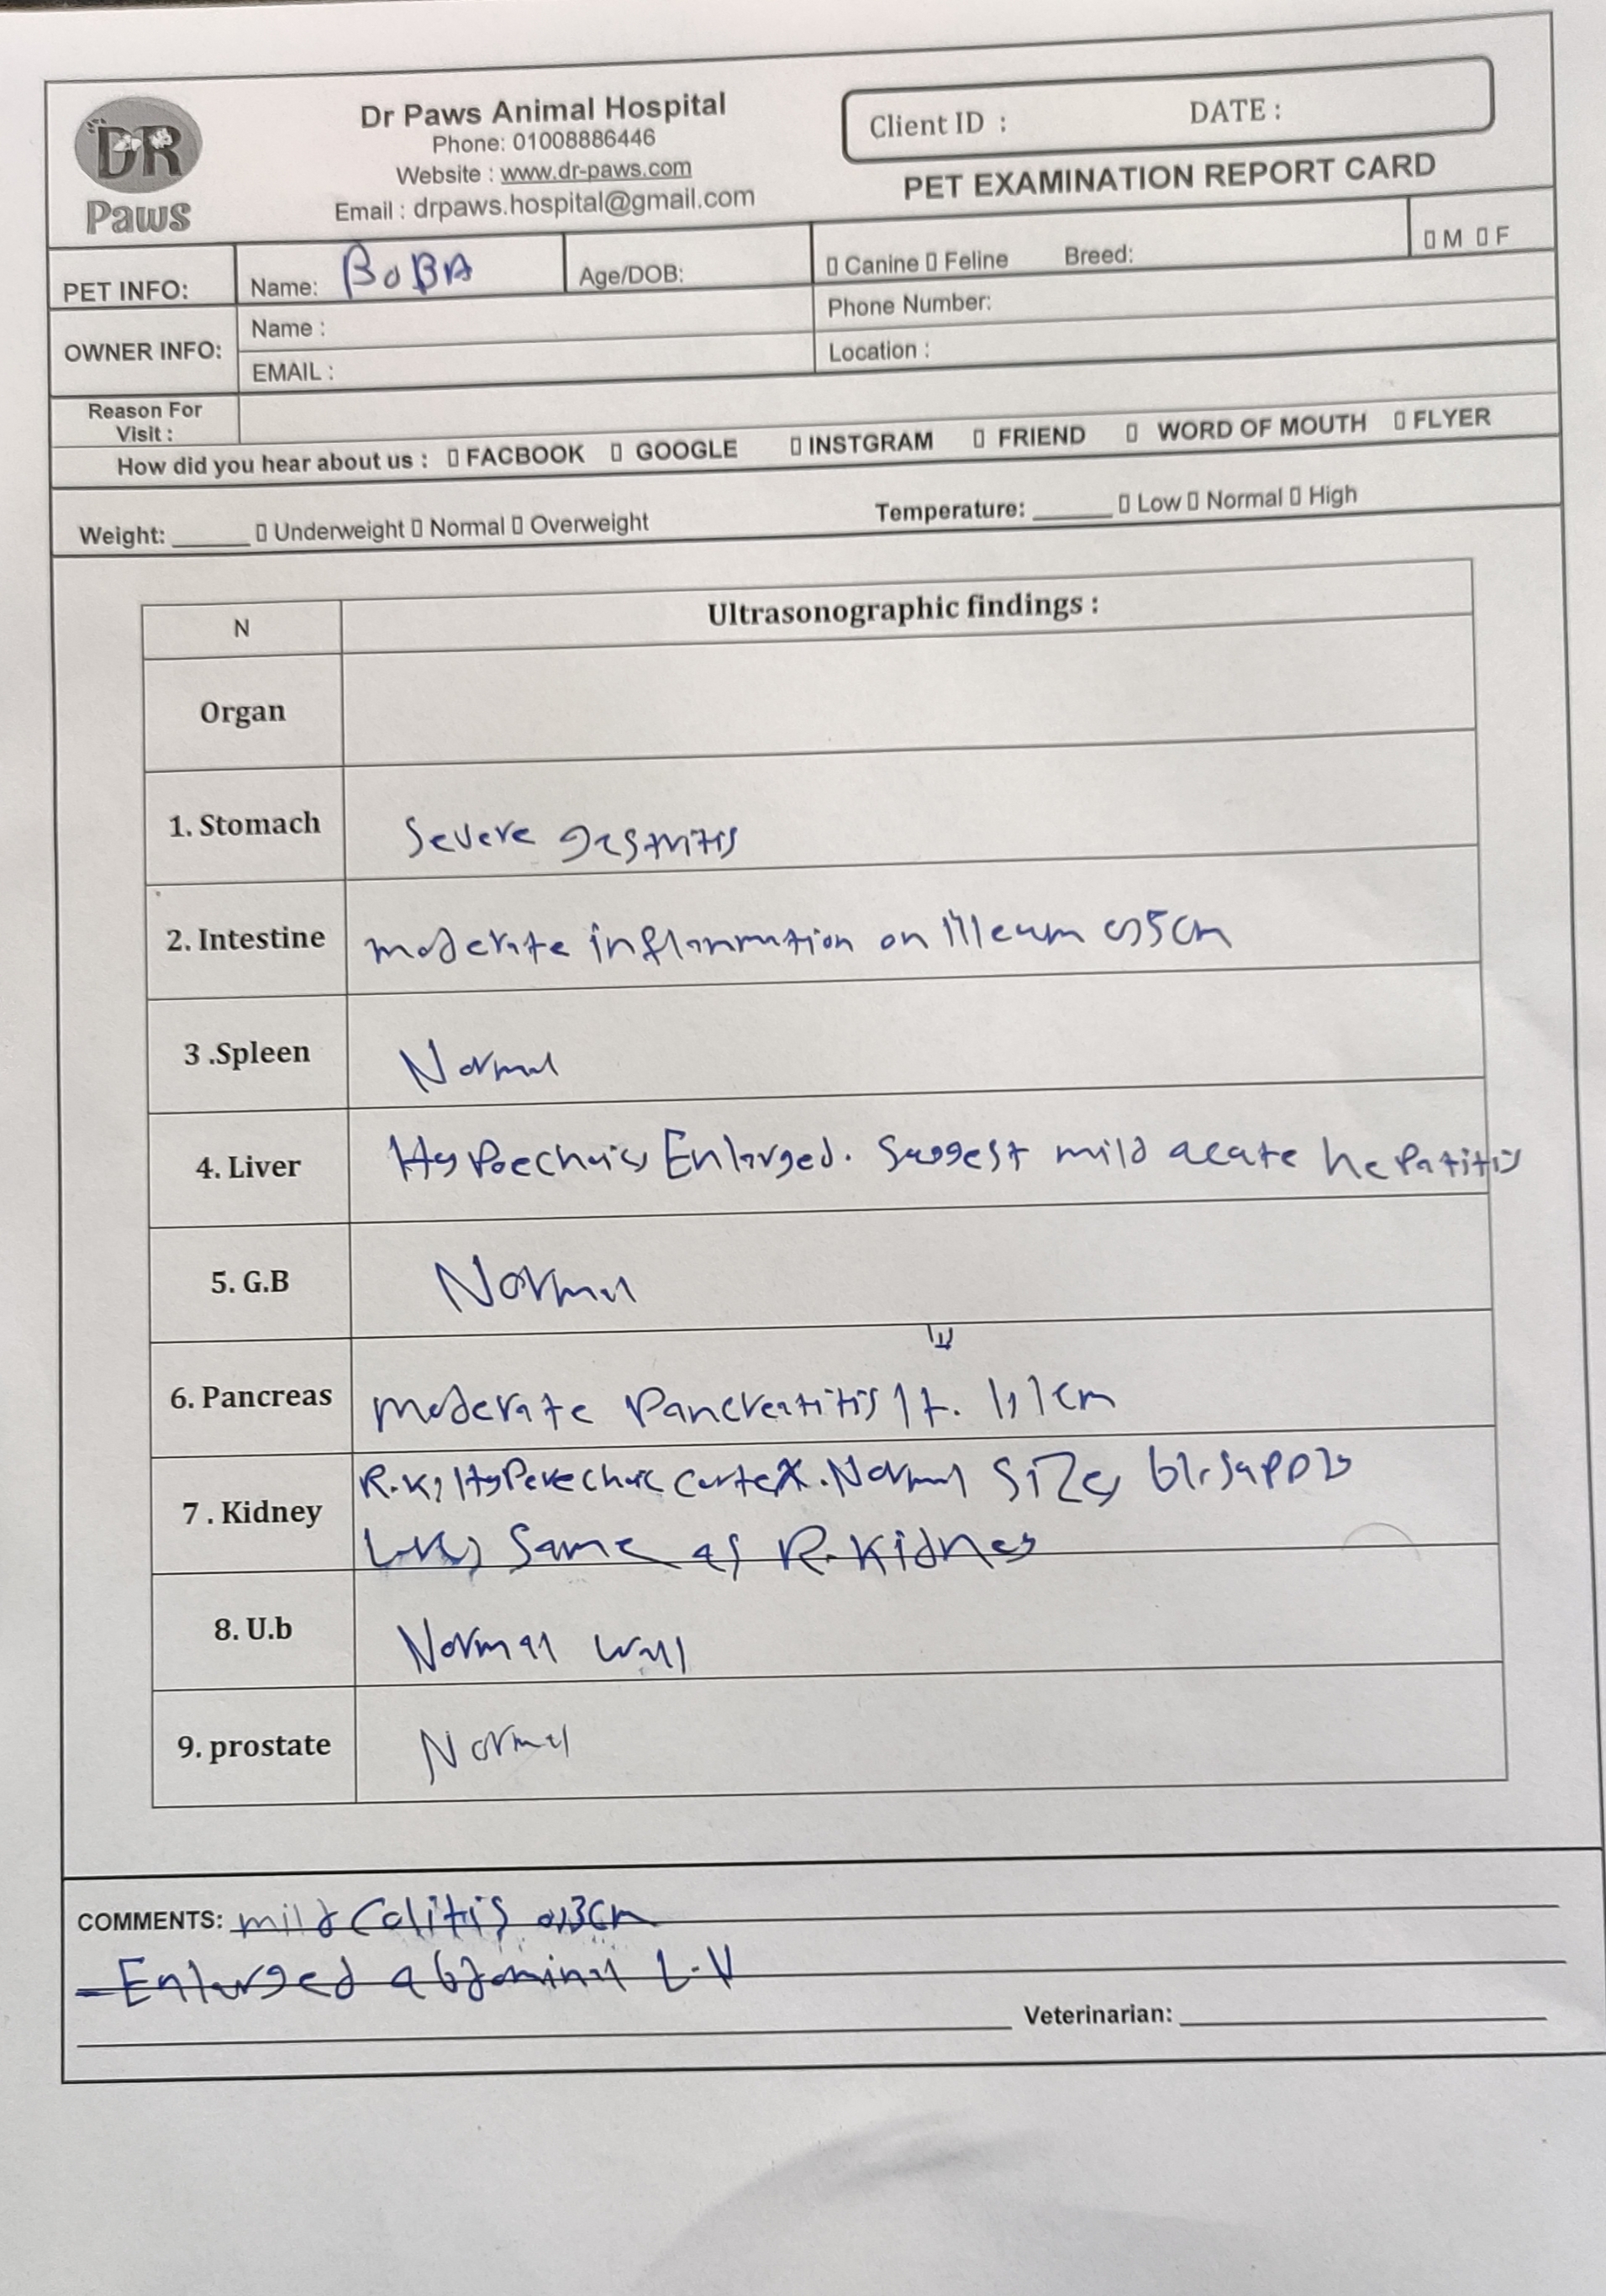 DR
Paws
Dr Paws Animal Hospital
Phone: 01008886446
Website : www.dr-paws.com
Email : drpaws.hospital@gmail.com
Client ID : DATE :
PET EXAMINATION REPORT CARD
PET INFO: Name: BOBA Age/DOB: Canine Feline Breed: M F
OWNER INFO:
Name : Phone Number:
EMAIL : Location :
Reason For
Visit :
How did you hear about us : FACBOOK GOOGLE INSTGRAM FRIEND WORD OF MOUTH FLYER
Weight: Underweight Normal Overweight Temperature: Low Normal High
N Ultrasonographic findings :
Organ
1. Stomach Severe gastritis
2. Intestine moderate inflammation on illeum 0,5cm
3 .Spleen Normal
4. Liver Hypoechoic, Enlarged. Suggest mild acute hepatitis
5. G.B Normal
6. Pancreas moderate Pancreatitis 1,1cm
7 . Kidney R.K, Hyperechoic cortex. Normal Size, bl.supply
L.K, Same as R.Kidney
8. U.b Normal wall
9. prostate Normal
COMMENTS: mild Colitis 0,3cm
Enlarged abdominal L.N
Veterinarian: